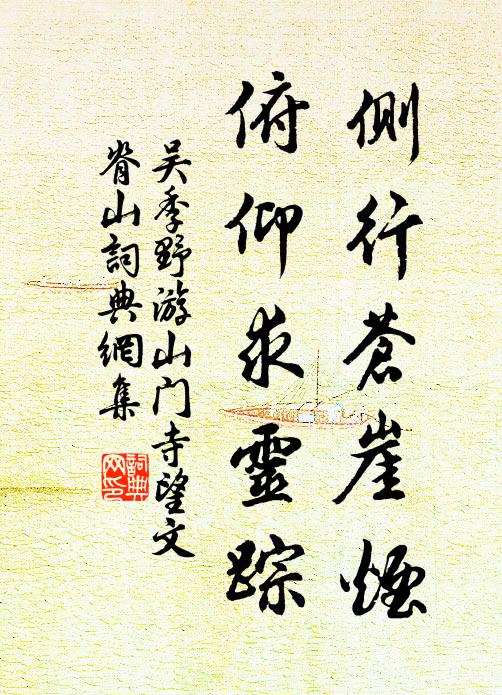 側行蒼崖煙
俯仰求靈踪
吴季野游山门寺望文
脊山詞典網集
詞典
网印